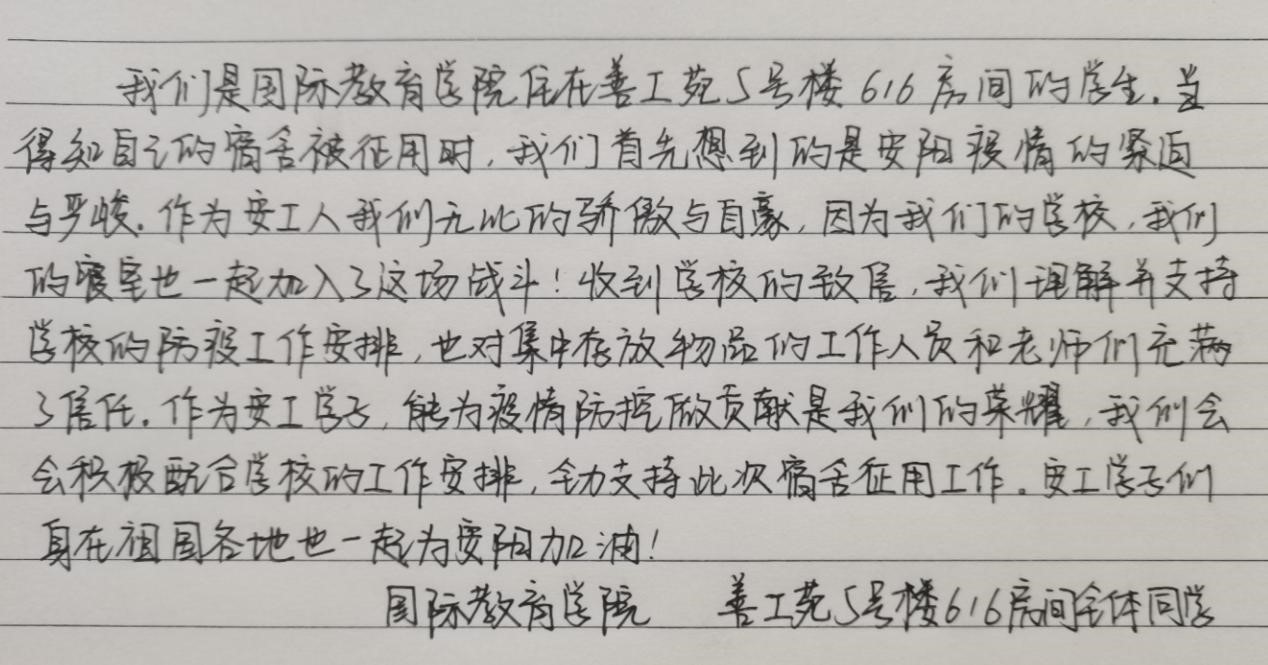 我们是国际教育学院住在善工苑5号楼616房间的学生.当
得知自己的宿舍被征用时,我们首先想到的是安阳疫情的紧迫
与严峻.作为安工人我们无比的骄傲与自豪,因为我们的学校,我们
的寝室也一起加入了这场战斗!收到学校的致信,我们理解并支持
学校的防疫工作安排,也对集中存放物品的工作人员和老师们充满
了信任.作为安工学子,能为疫情防控做贡献是我们的荣耀,我们会
会积极配合学校的工作安排,全力支持此次宿舍征用工作.安工学子们
身在祖国各地也一起为安阳加油!
国际教育学院 善工苑5号楼616房间全体同学